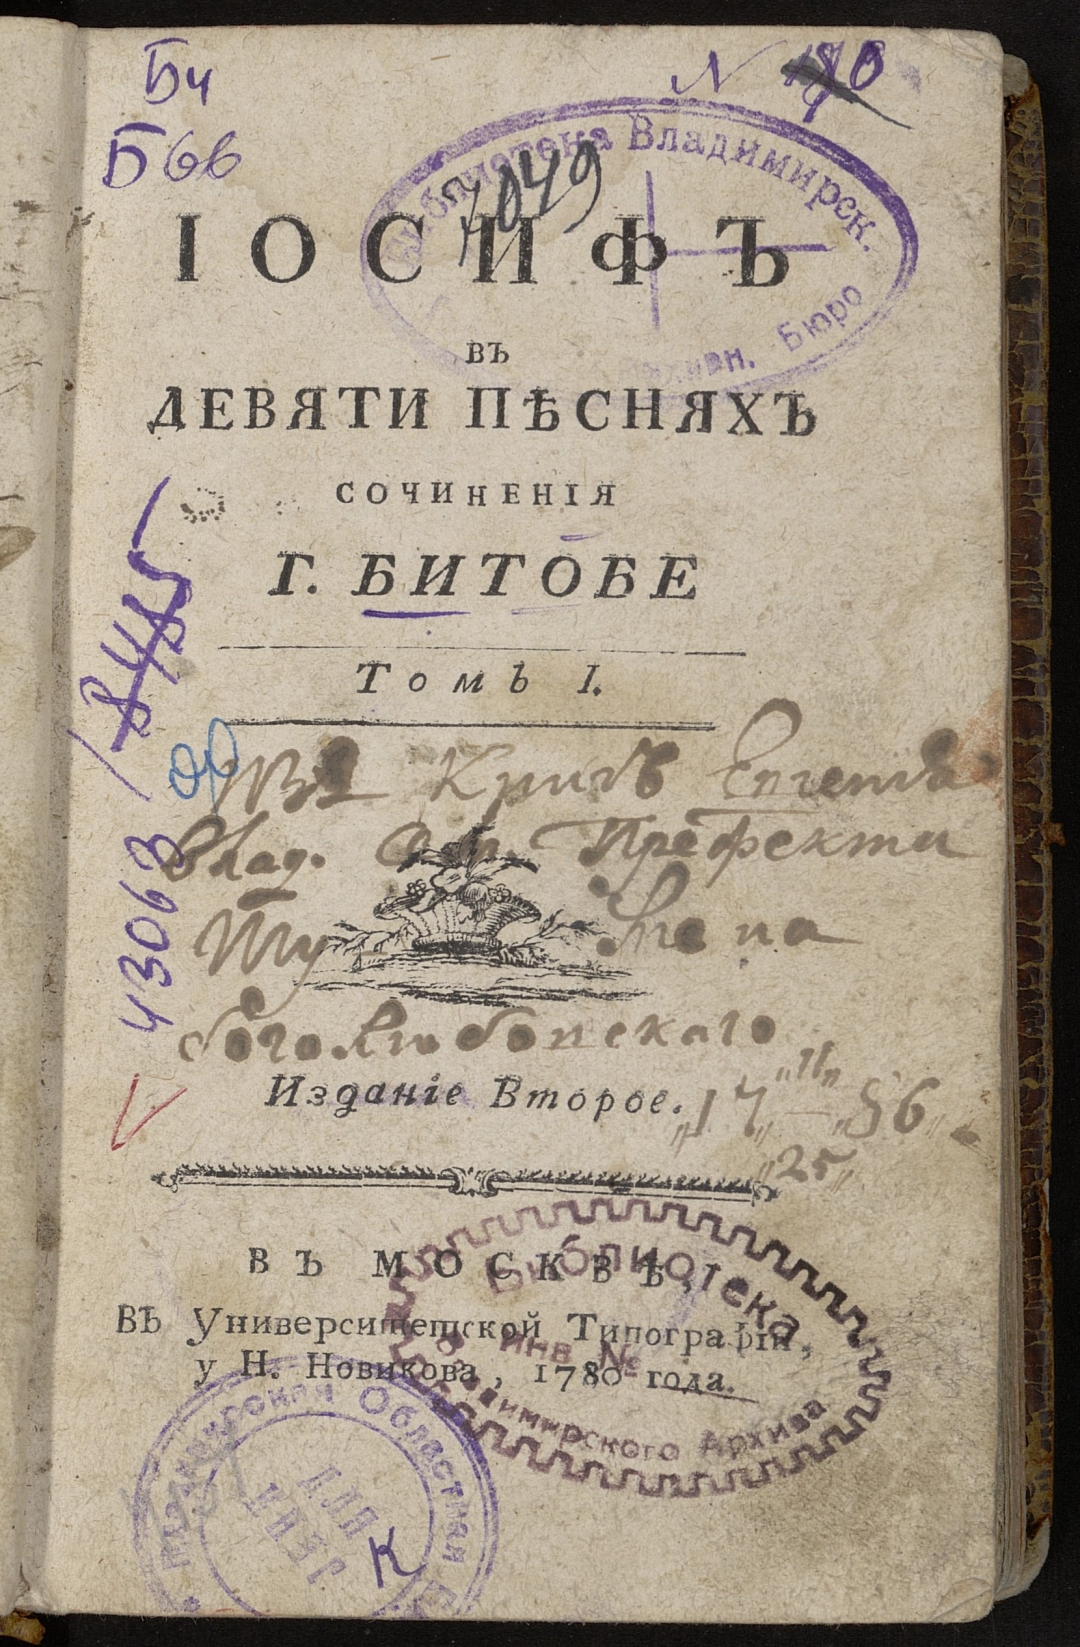 Бч
Б66
N
7049
Библиотека Владимирск.
Архивн. Бюро
ІОСИФЪ
въ
ДЕВЯТИ ПѢСНЯХЪ
СОЧИНЕНІЯ
Г. БИТОБЕ
Томъ I.
43063
Изъ Книгъ Евгенія
Влад. Префекта
Игумена
боголюбовскаго
Изданіе Второе.
„17„ — „86„
„11„
„25„
ВЪ МОСКВѢ,
Въ Университетской Типографіи,
у Н. Новикова, 1780 года.
Библиотека
Инв №
Владимирского Архива
Владимирская Областная
ДЛЯ
КНИГ
К